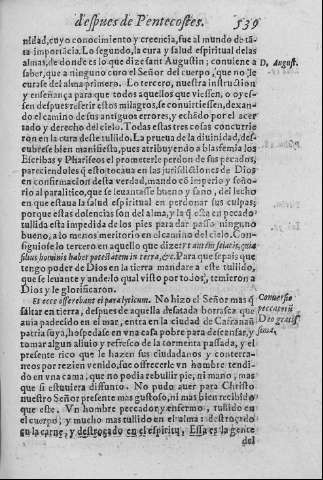 despues de Pentecostes. 539
nidad, cuyo conocimiento y creencia, fue al mundo de tã-
ta importãcia. Lo segundo, la cura y salud espiritual de las
almas, de donde es lo que dize sant Augustin; conviene a
D. August.
saber, que a ninguno curo el Señor del cuerpo, que no le
curase del alma primero. Lo tercero, nuestra instruction
y enseñança para que todos aquellos que viessen, o oyes-
sen despues referir estos milagros, se convirtiessen, dexan-
do el camino de sus antiguos errores, y echãdo por el acer
tado y derecho del cielo. Todas estas tres cosas concurrie
ron en la cura deste tullido. La prueva de la divinidad, des-
cubrese bien manifiesta, pues atribuyendo a blasfemia los
Escribas y Phariseos el prometerle perdon de sus pecados,
pareciendoles q̃ esto tocava en las jurisdictiones de Dios
en confirmacion desta verdad, mando cõ imperio y seño-
rio al paralitico, que se levantasse bueno y sano, del lecho
en que estava la salud espiritual en perdonar sus culpas;
porque estas dolencias son del alma, y la q̃ esta en pecado
tullida esta impedida de los pies para dar passo ninguno
bueno, alo menos meritorio en el camino del cielo. Con-
siguiose lo tercero en aquello que dize; Vt autẽ sciatis, quia
filius hominis habet potestatem in terra, &c. Para que sepais que
tengo poder de Dios en la tierra mandare a este tullido,
que se levante y ande lo qual visto por todos, temieron a
Dios y le glorificaron.
Et ecce offerebant ei paralyticum. No hizo el Señor mas q̃
Conversio
saltar en tierra, despues de aquella desatada borrasca que
peccatoris
avia padecido en el mar, entra en la ciudad de Cafranaũ
Deo gratis
patria suya, hospedase en vna casa pobre para descansar, y
sima.
tomar algun alivio y refresco de la tormenta passada, y el
presente rico que le hazen sus ciudadanos y conterra-
neos por rezien venido, fue offrecerle vn hombre tendi-
do en vna cama, que no podia rebullir pie, ni mano, mas
que si estuviera difunto. No pudo aver para Christo
nuestro Señor presente mas gustoso, ni mas bien recibido
que este. Vn hombre pecador, y enfermo, tullido en
el cuerpo; y mucho mas tullido en el alma: destroçado
en la carne, y destroçado en el espiritu, Essa es la gente
del